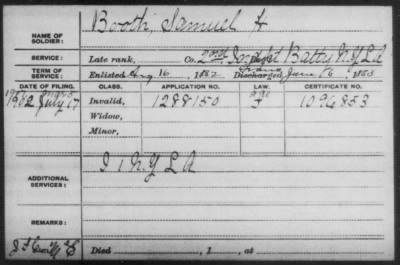 NAME OF SOLDIER: Booth, Samuel H
SERVICE: Late rank, Co. Indpt Batty N.Y. L A
TERM OF SERVICE: Enlisted Aug 16, 1862 Discharged June 16, 1865
DATE OF FILING. CLASS. APPLICATION NO. LAW. CERTIFICATE NO.
1902 July 17 Invalid, 1288150 1096853
Widow,
Minor,
ADDITIONAL SERVICES: I 1 N.Y L A
REMARKS:
Died , 1 , at